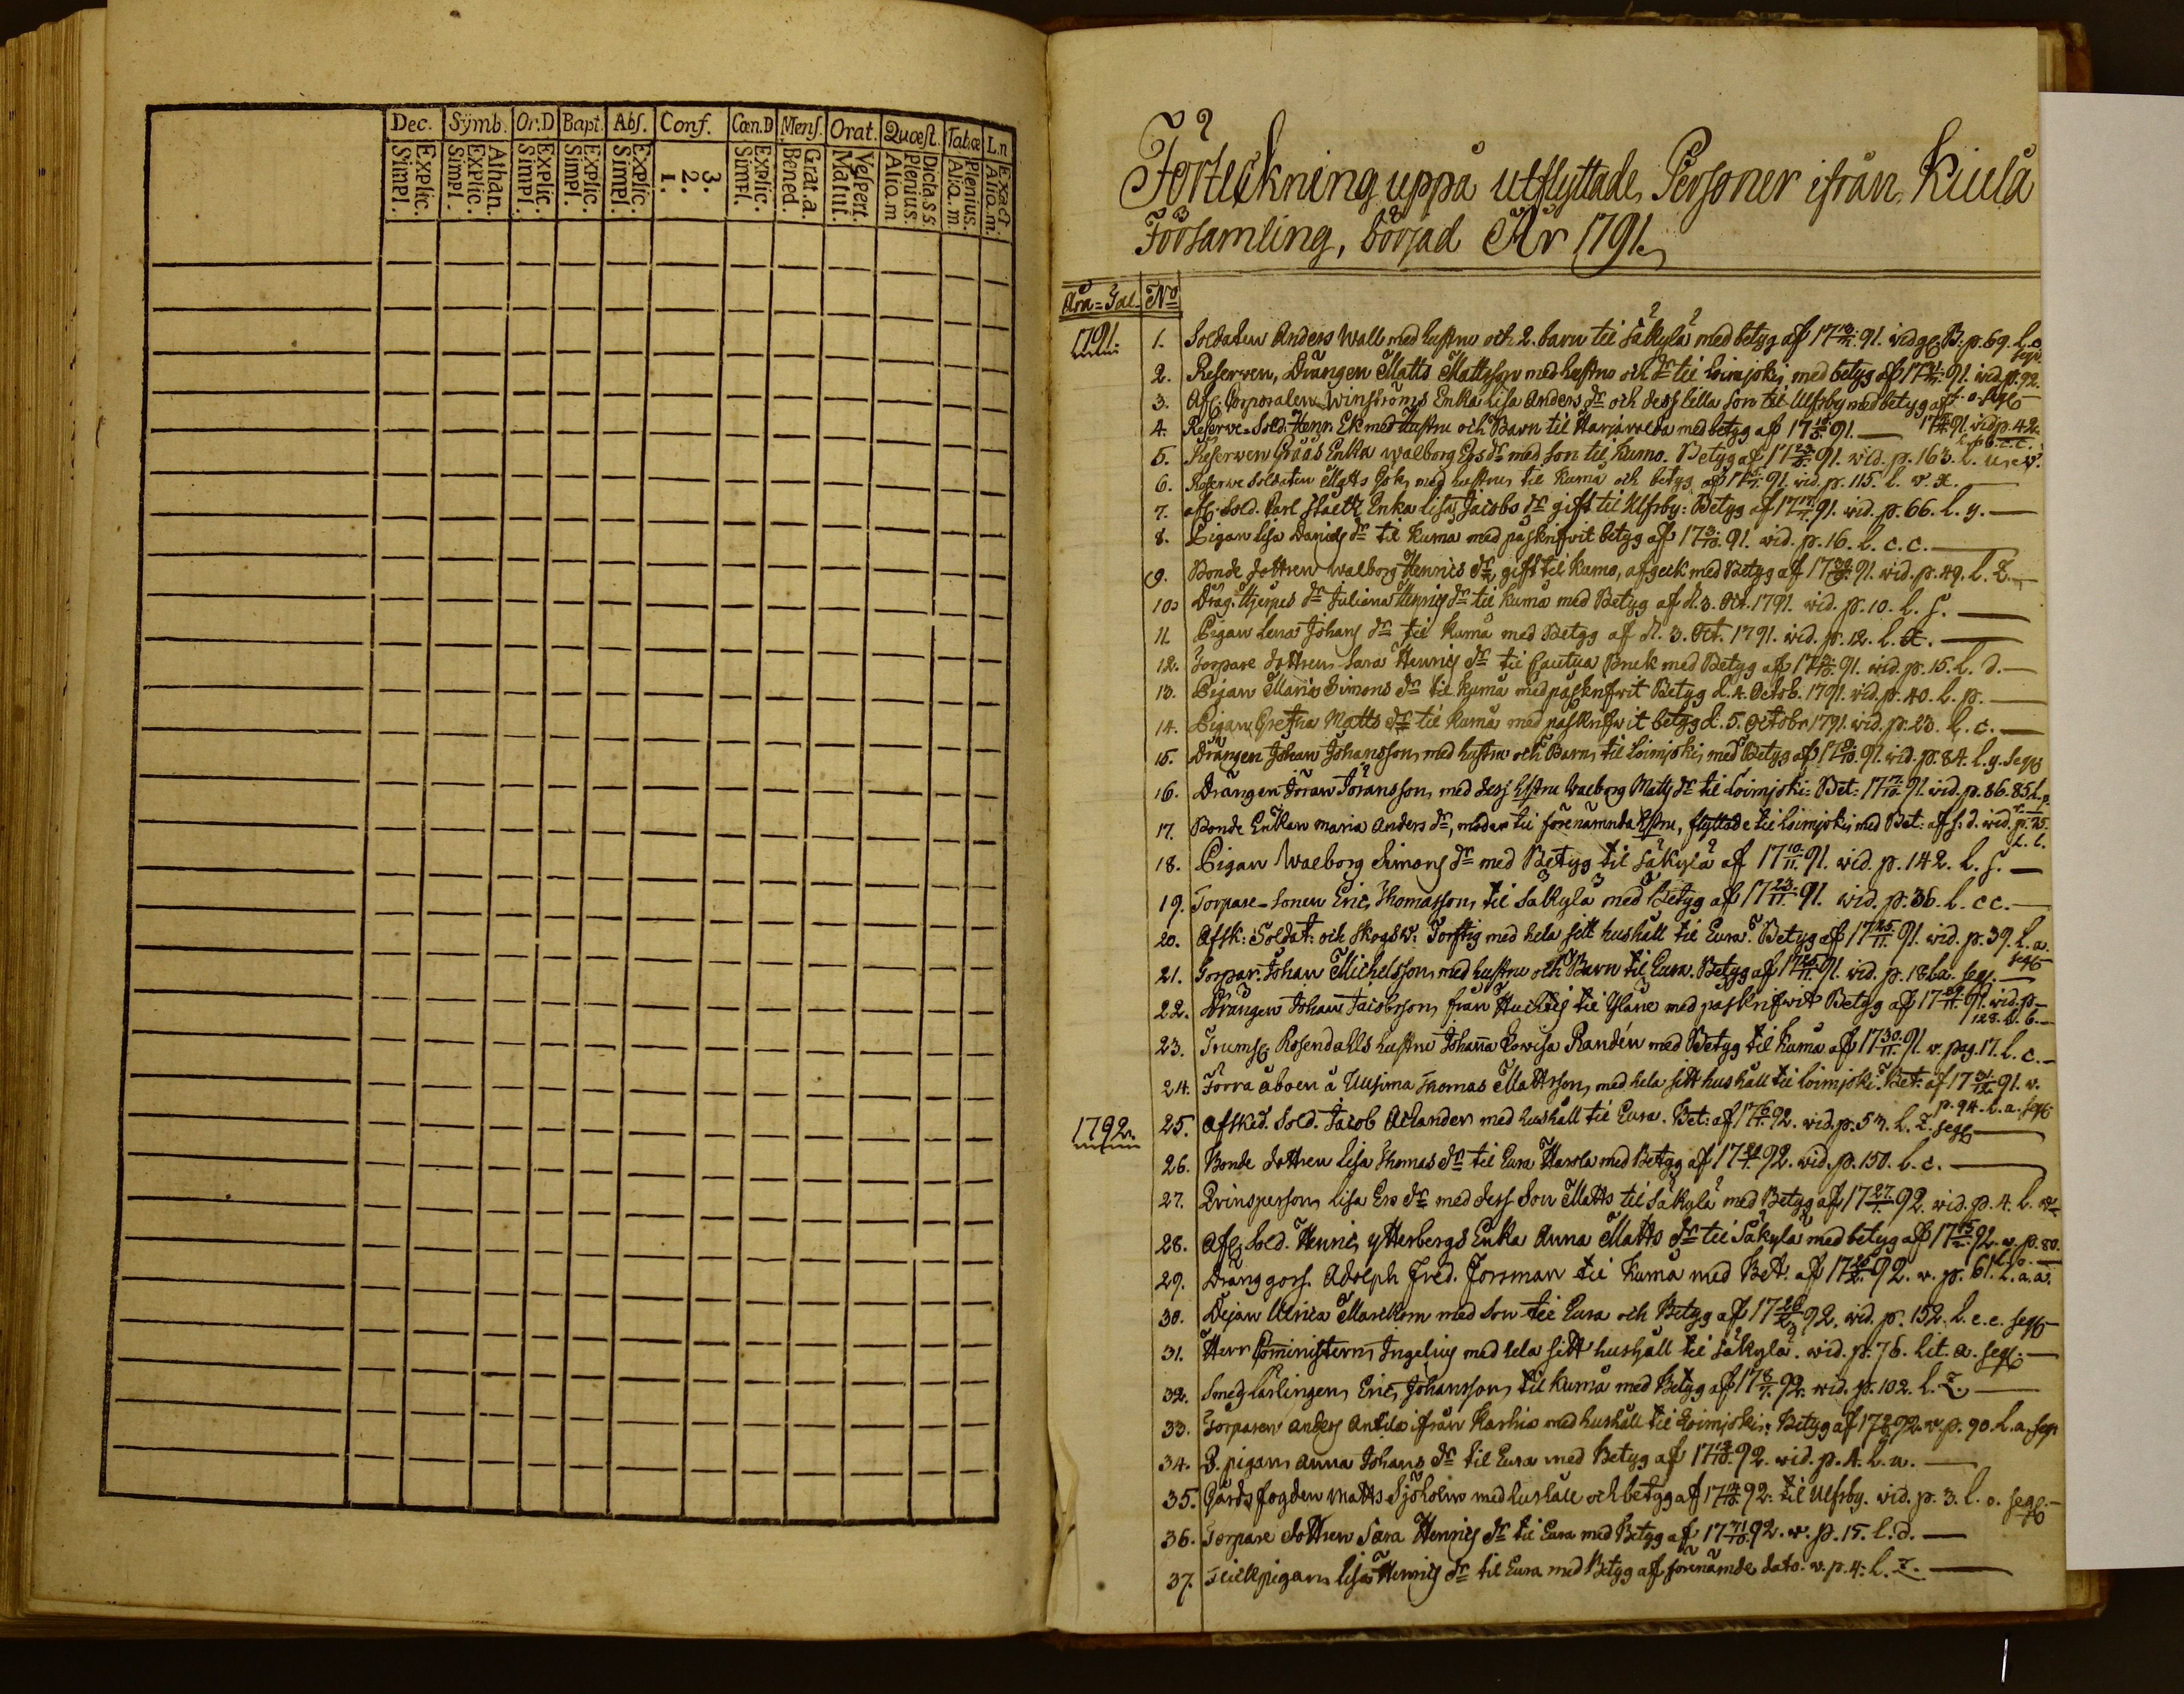 Dec. Sÿmb. Or.D Bapt. Abs. Conf. Cœn.D Mens. Orat. Quœst. Tab.œ L.n
Explic. Simpl. Athan. Explic. Simpl. Explic. Simpl. Explic. Simpl. Explic. Simpl. 3. 2. 1. Explic. Simpl. Grat.a. Bened. Vespert. Matut. Dicta.s s Plenius. Alio.m Plenius. Alia.m Exact. Alia.m.
Förteckning uppå utflyttade Personer ifrån Kiula
Församling, börjad År 1791.
Åra-Tal No
1791. 1. Soldaten Anders Wall med hustru och 2. barn til Säkylä med betyg af 17 91. vid p. 69. L. o
seqv.
2. Reserven, Drängen Matts Mattsson med hustru och dr til Loimjoki med betyg af 17 91. vid. p. 92.
3. Afs. Corporalen Winströms Enka Lisa Anders dr och dess lilla son til Ulfsby med betyg af
4. Reserve-Sold. Henr. Ek med hustru och Barn til Harjavalda med betyg af 17 91. — 17 91. vid p. 42.
5. Reserven Gråås Enka Walborg Ers dr med son til Kumo. Betyg af 17 91. vid. p. 163. L. u. v.
6. Reserve Soldaten Matts Gök, med hustru til Kumå och betyg af 17 91. vid. p. 115. l. v. x. —
7. afs. Sold. Carl Staelts Enka Lisa Jacobs dr gift til Ulfsby: Betyg af 17 91. vid. p. 66. l. y. —
8. Pigan Lisa Daniels dr til Kumå med påskrifvit betyg af 17 3/10. 91. vid. p. 16. L. c. c. —
9. Bonde dottren Walborg Henrics dr gift til Kumo, afgeck med Betyg af 17 91. vid. p. 49. L. Z. —
10. Drag. Hjerpes dr Juliana Henrics dr til Kumå med Betyg af d. 3. Oct. 1791. vid. p. 10. L. s. —
11. Pigan Lena Johans dr til Kumå med Betyg af d. 3. Oct. 1791. vid. p. 12. l. —
12. Torpare dottren Sara Henrics dr til Cautua Bruk med Betyg af 17 91. vid. p. 15. L. d. —
13. Pigan Maria Simons dr til Kumå med påskrifvit Betyg d. 4. Octob. 1791. vid. p. 40. L. p. —
14. Pigan Gretha Matts dr til Kumå med påskrifvit betyg d. 5. Octobr 1791. vid. p. 23. L. c. —
15. Drängen Johan Johansson med hustru och Barn til Loimjoki med Betyg af 17 91. vid. p. 84. l. y. seqv
16. Drängen Göran Göransson, med dess hstru Walborg Matts dr til Loimjoki: Bet: 17 91. vid. p. 86. 85. L. p.
17. Bonde Enkan Maria Anders dr, moder til förenämnda hstru, flyttade til Loimjoki med Bet: af s. d. vid. p. 75.
L. l.
18. Pigan Walborg Simons dr med Betyg til Säkylä af 17 10/11. 91. vid. p. 142. L. s. —
19. Torpare-sonen Eric Thomasson, til Säkylä med Betyg af 17 23/11. 91. vid. p. 36. L. cc. —
20. Afsk: Soldat: och Skogsv: Torftig med hela sitt hushåll til Eura. Betyg af 17 25/11. 91. vid. p. 39. L. a.
seqv
21. Torpar. Johan Michelsson med hustru och Barn til Eura. Betyg af 17 91. vid. p. 18 L. a. seq. —
22. Drängen Johan Jacobsson, från til Yläne med påskrifvit Betyg af 17 91. vid. p—
128. L. b. —
23. Trums. Rosendahls hustru Johanna Lowisa Randén med Betyg til Kumå af 17 30/11. 91. v. pag. 17. L. c. —
24. Förra åboen å Uusima Thomas Mattsson, med hela sitt hushåll til Loimjoki. Bet: af 17 91. v.
p. 94. L. a. seqv
1792. 25. Afsked. Sold. Jacob Achander med hushåll til Eura. Bet: af 17 92. vid. p. 53. L. Z. seqv —
26. Bonde dottren Lisa Thomas dr til Eura Harola med Betyg af 17 92. vid. p. 150. L. c. —
27. Qvinsperson Lisa Ers dr med dess Son Matts til Säkylä med Betyg af 17 27/1. 92. vid. p. 4. L.
28. Afs. Sold. Henric Ytterbergs Enka Anna Matts dr til Säkylä med betyg af 17 92. v. p. 80.
29. Dräng goss. Adolph Fred. Forsman til Kumå med Bet. af 17 92. v. p. 61. L. a. a.
30. Dejan Ulrica Marckom med son til Eura och Betyg af 17 92. vid. p. 152. L. e. e. seqv —
31. Herr Cominister Ingelius med hela sitt hushåll til Säkylä. vid. p. 76. Lit. a. seqv. —
32. Smeds Lärlingen, Eric Johansson, til Kumå med Betyg af 17 92. vid. p. 102. L. Z. —
33. Torparen Anders Antila ifrån Karhia med hushåll til Loimjoki: Betyg af 17 92. v. p. 90. L. a. seqv
34. B. pigan Anna Johans dr til Eura med Betyg af 17 92. vid. p. 4. L. u. —
35. Gårds fogden Matts Sjöholm med hushåll och betyg af 17 92. til Ulfsby. vid. p. 3. l. o. seqv. —
36. Torpare dottren Sara Henrics dr til Eura med Betyg af 17 92. v. p. 15. l. d. —
37. pigan Lisa Henrics dr til Eura med Betyg af förenämde dato. v. p. 4: L. Z. —